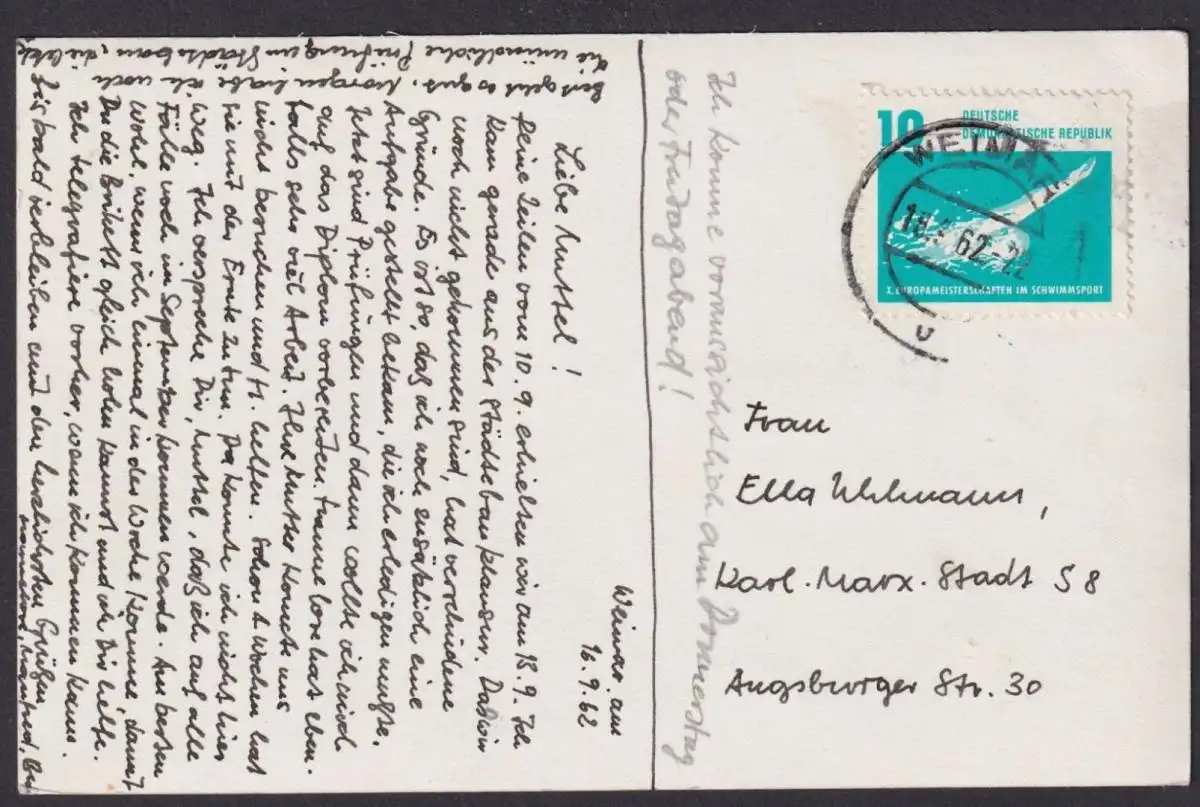 Weimar, am
16.9.62
Liebe Mussel!
Deine Zeilen vom 10.9. erhielten wir am 13.9. Ich
kam gerade aus der Städtebauklausur. Daß wir
noch nicht gekommen sind, hat verschidene
Gründe. Es ist so, daß ich noch zusätzlich eine
Aufgabe gestellt bekam, die ich erledigen mußte.
Jetzt sind Prüfungen und dann wollte ich mich
auf das Diplom vorbereiten. Hannelore hat eben-
falls sehr viel Arbeit. Ihre Mutter konnte uns
nicht besuchen und ihr helfen. Schon 4 Wochen hat
sie mit der Ernte zu tun. Da konnte ich nicht hier
weg. Ich verspreche Dir, Mussel, daß ich auf alle
Fälle noch im September kommen werde. Am besten
wohl, wenn ich einmal in der Woche komme, damit
Du die Briketts gleich holen kannst und ich Dir helfe.
Ich telegrafiere vorher, wann ich kommen kann.
Bis bald verbleiben mit den herzlichsten Grüßen
Manfred,
geht es gut. Morgen habe ich noch
die mündliche Prüfung im Städtebau, die letzte
Ich komme voraussichtlich am Donnerstag
oder Freitagabend!
10 DEUTSCHE
DEMOKRATISCHE REPUBLIK
X. EUROPAMEISTERSCHAFTEN IM SCHWIMMSPORT
WEIMAR
62-22
Frau
Ella Uhlmann,
Karl-Marx-Stadt S 8
Augsburger Str. 30